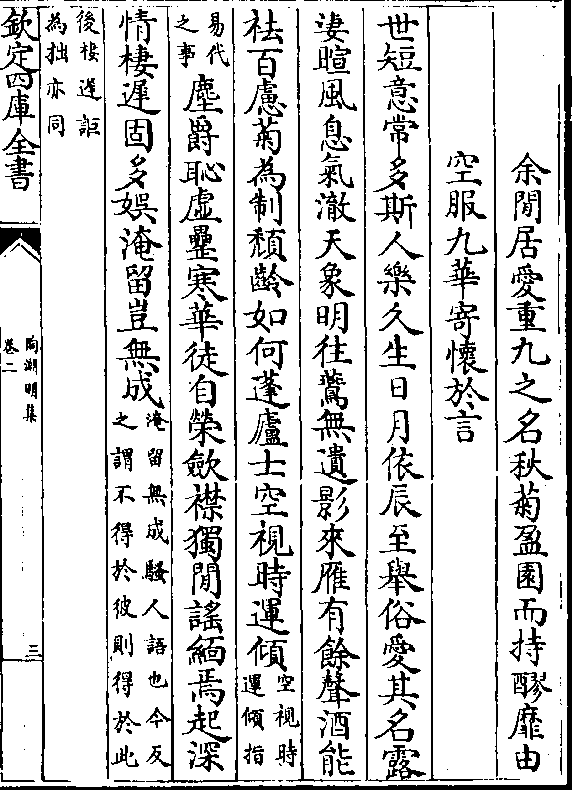 余閒居愛重九之名秋菊盈園而持醪靡由
空服九華寄懷於言
世短意常多斯人樂久生日月依辰至舉俗愛其名露
淒暄風息氣澈天象明往鷰無遺影來雁有餘聲酒能
祛百慮菊為制頹齡如何蓬廬士空視時運傾空視時運傾指
易代之事塵爵恥虛罍寒華徒自榮歛襟獨閒謠緬焉起深
情棲遲固多娛淹留豈無成淹留無成騷人語也今反之謂不得於彼則得於此
後棲遲詎為拙亦同
欽定四庫全書
陶淵明集
卷二
三